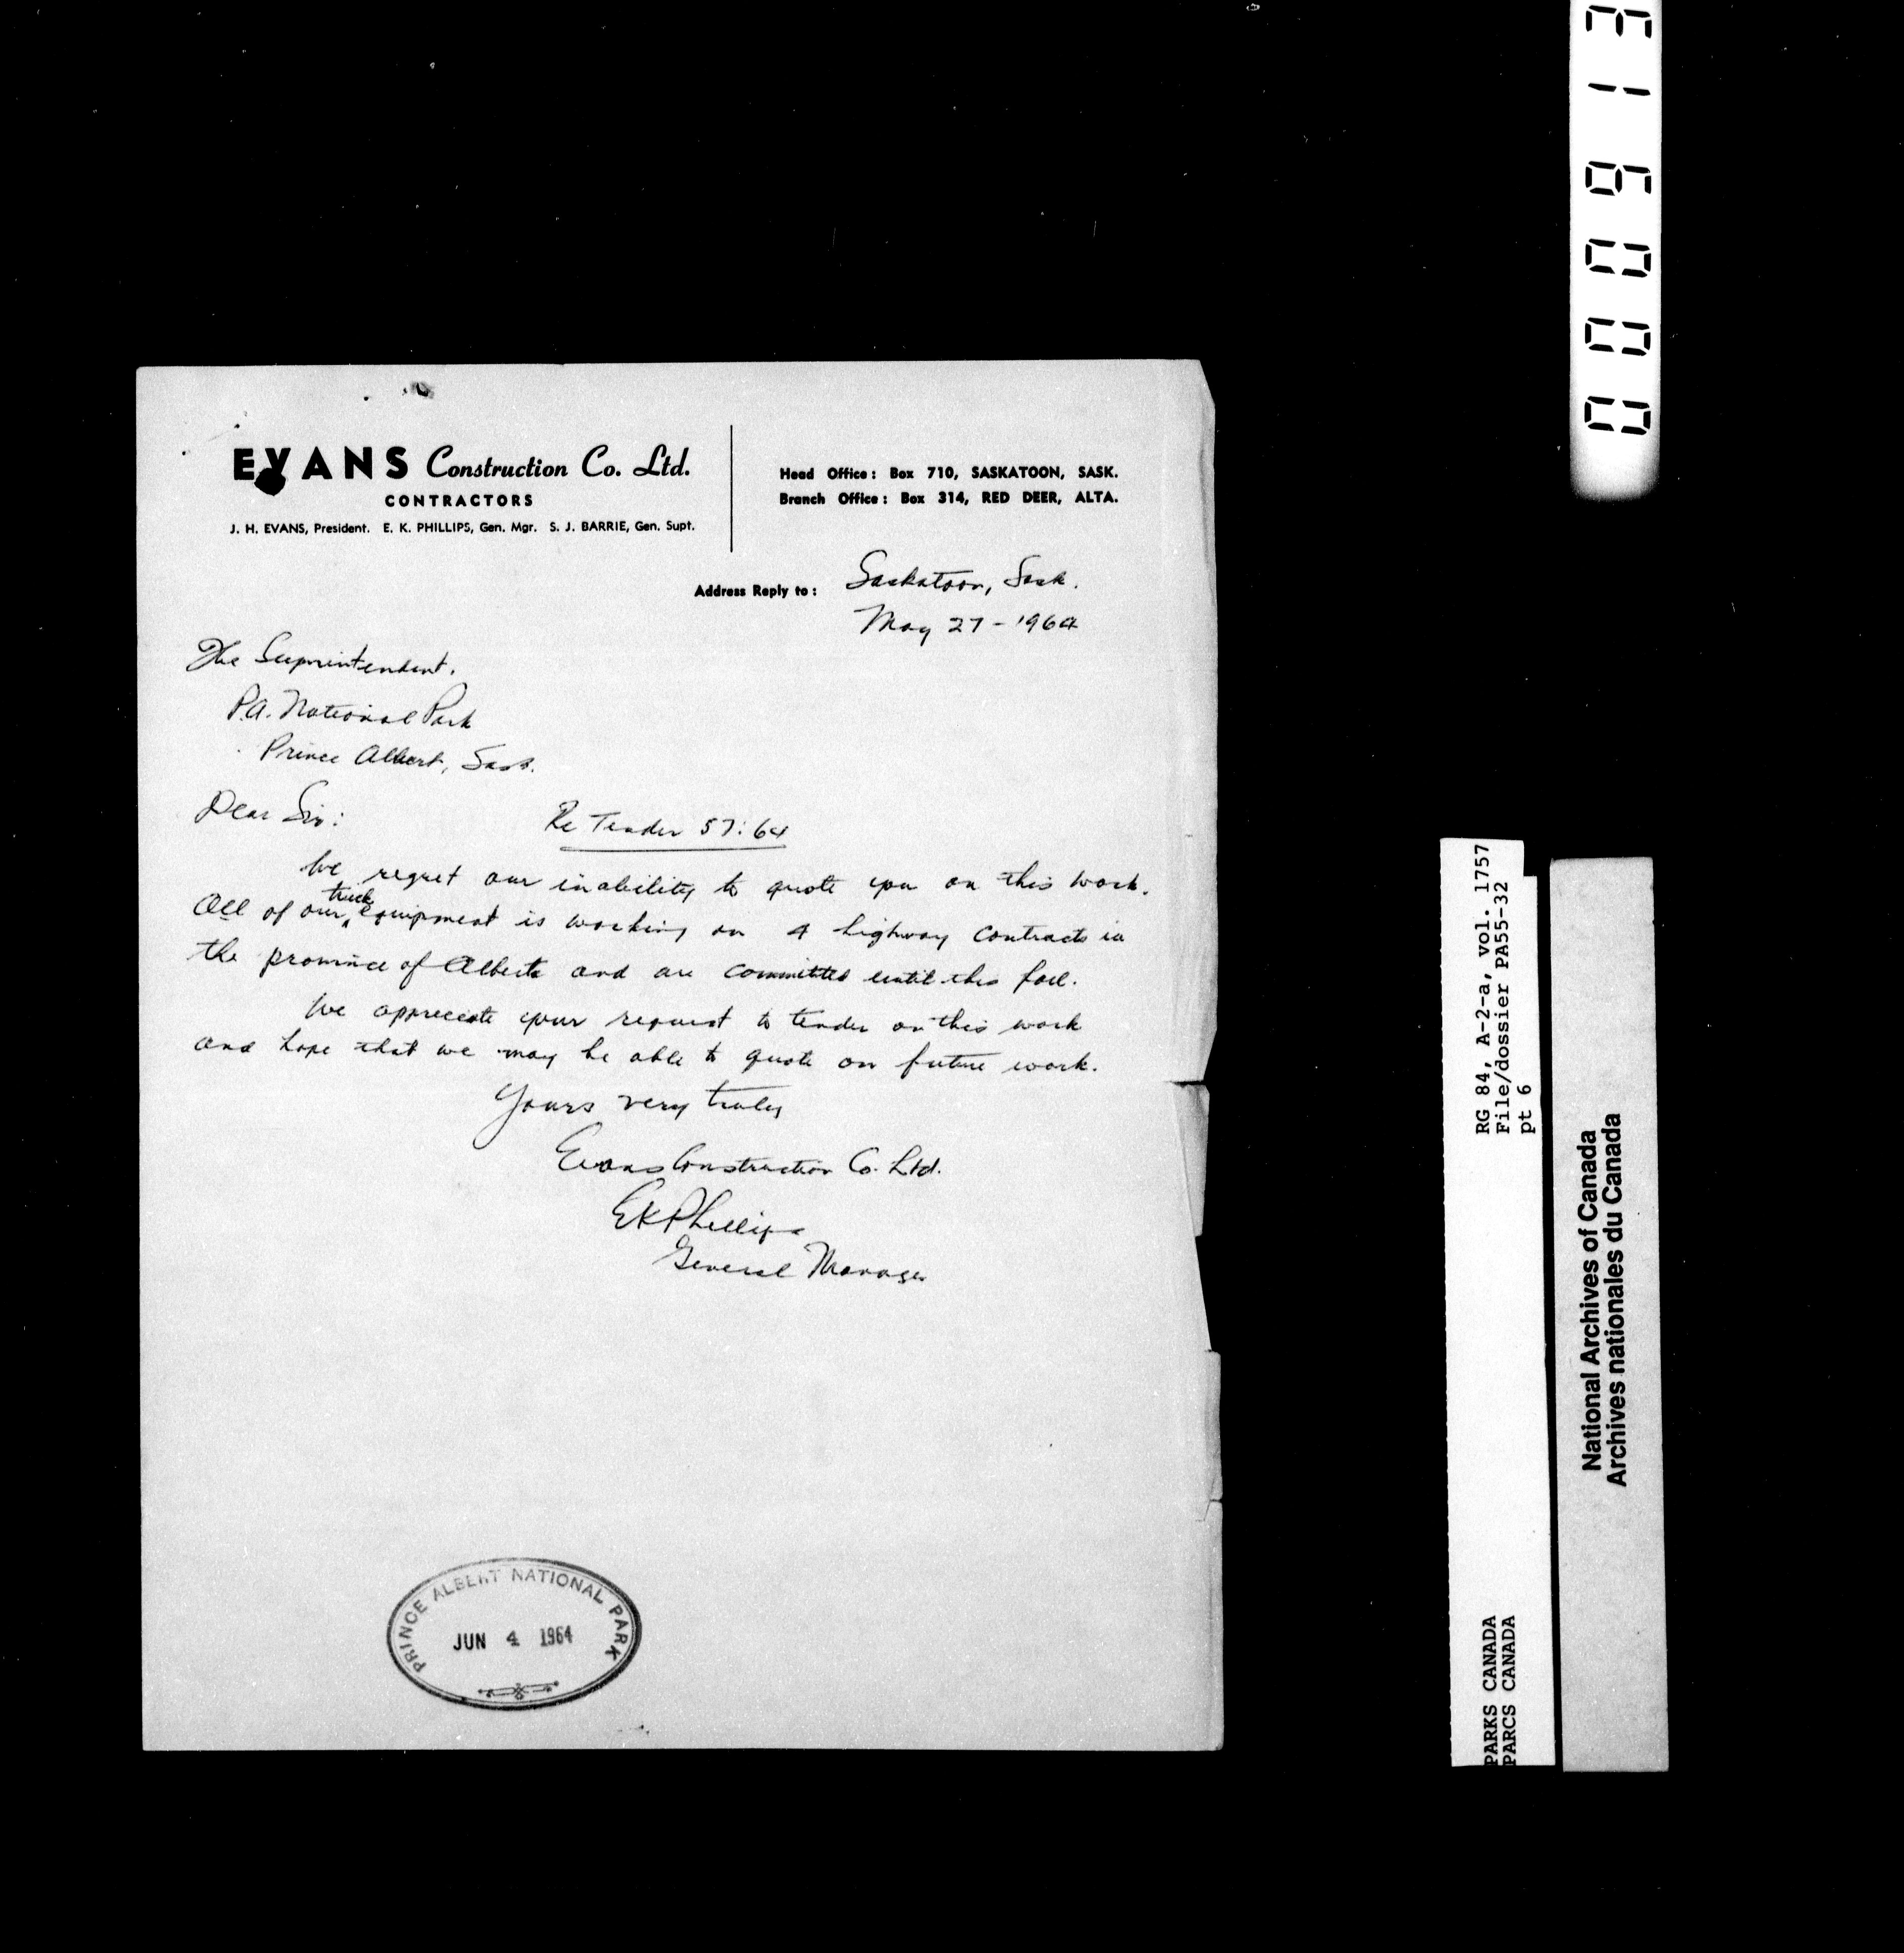 EVANS Construction Co. Ltd.
CONTRACTORS
J. H. EVANS, President. E. K. PHILLIPS, Gen. Mgr. S. J. BARRIE, Gen. Supt.
Head Office: Box 710, SASKATOON, SASK.
Branch Office: Box 314, RED DEER, ALTA.
Address Reply to: Saskatoon, Sask.
May 27 - 1964
The Superintendent,
P.A. National Park
Prince Albert, Sask.
Dear Sir:
Re Tender 57:64
We regret our inability to quote you on this work.
All of our truck equipment is working on 4 highway contracts in
the province of Alberta and are committed until this fall.
We appreciate your request to tender on this work
and hope that we may be able to quote on future work.
Yours very truly
Evans Construction Co. Ltd.
EKPhillips
General Manager
PRINCE ALBERT NATIONAL PARK
JUN 4 1964
000913
RG 84, A-2-a, vol. 1757
File/dossier PA55-32
pt 6
PARKS CANADA
PARCS CANADA
National Archives of Canada
Archives nationales du Canada